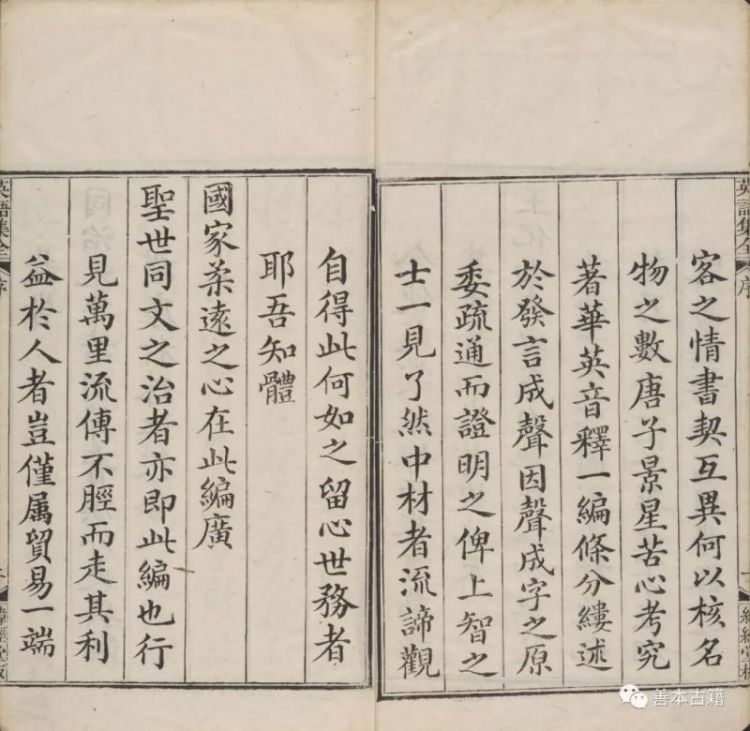 客之情書契互異何以核名
物之數唐子景星苦心考究
著華英音釋一編條分縷述
於發言成聲因聲成字之原
委疏通而證明之俾上智之
士一見了然中材者流諦觀
自得此何如之留心世務者
耶吾知體
國家柔遠之心在此編廣
聖世同文之治者亦即此編也行
見萬里流傳不脛而走其利
益於人者豈僅属貿易一端
英語集全
序
英語集全
序
善本古籍